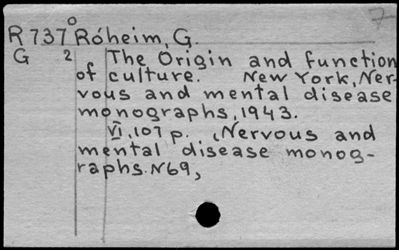 7
R737° Róheim, G.
G 2 The Origin and function
of culture. New York, Ner-
vous and mental disease
monographs, 1943.
VI, 107 p. (Nervous and
mental disease monog-
raphs. N69,